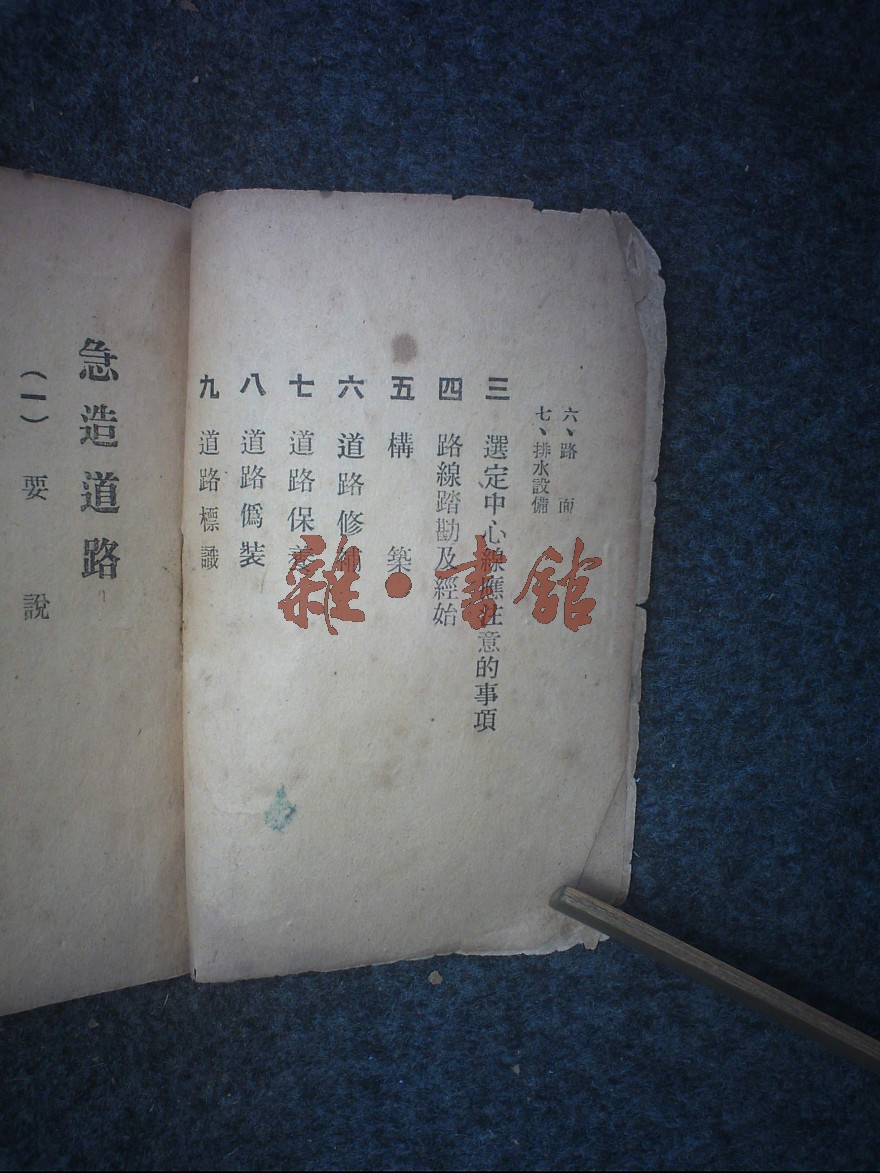 六、路面
七、排水設備
三 選定中心線應注意的事項
四 路線踏勘及經始
五 構築
六 道路修補
七 道路保養
八 道路僞裝
九 道路標識
急造道路
（一）要說
雜·書館